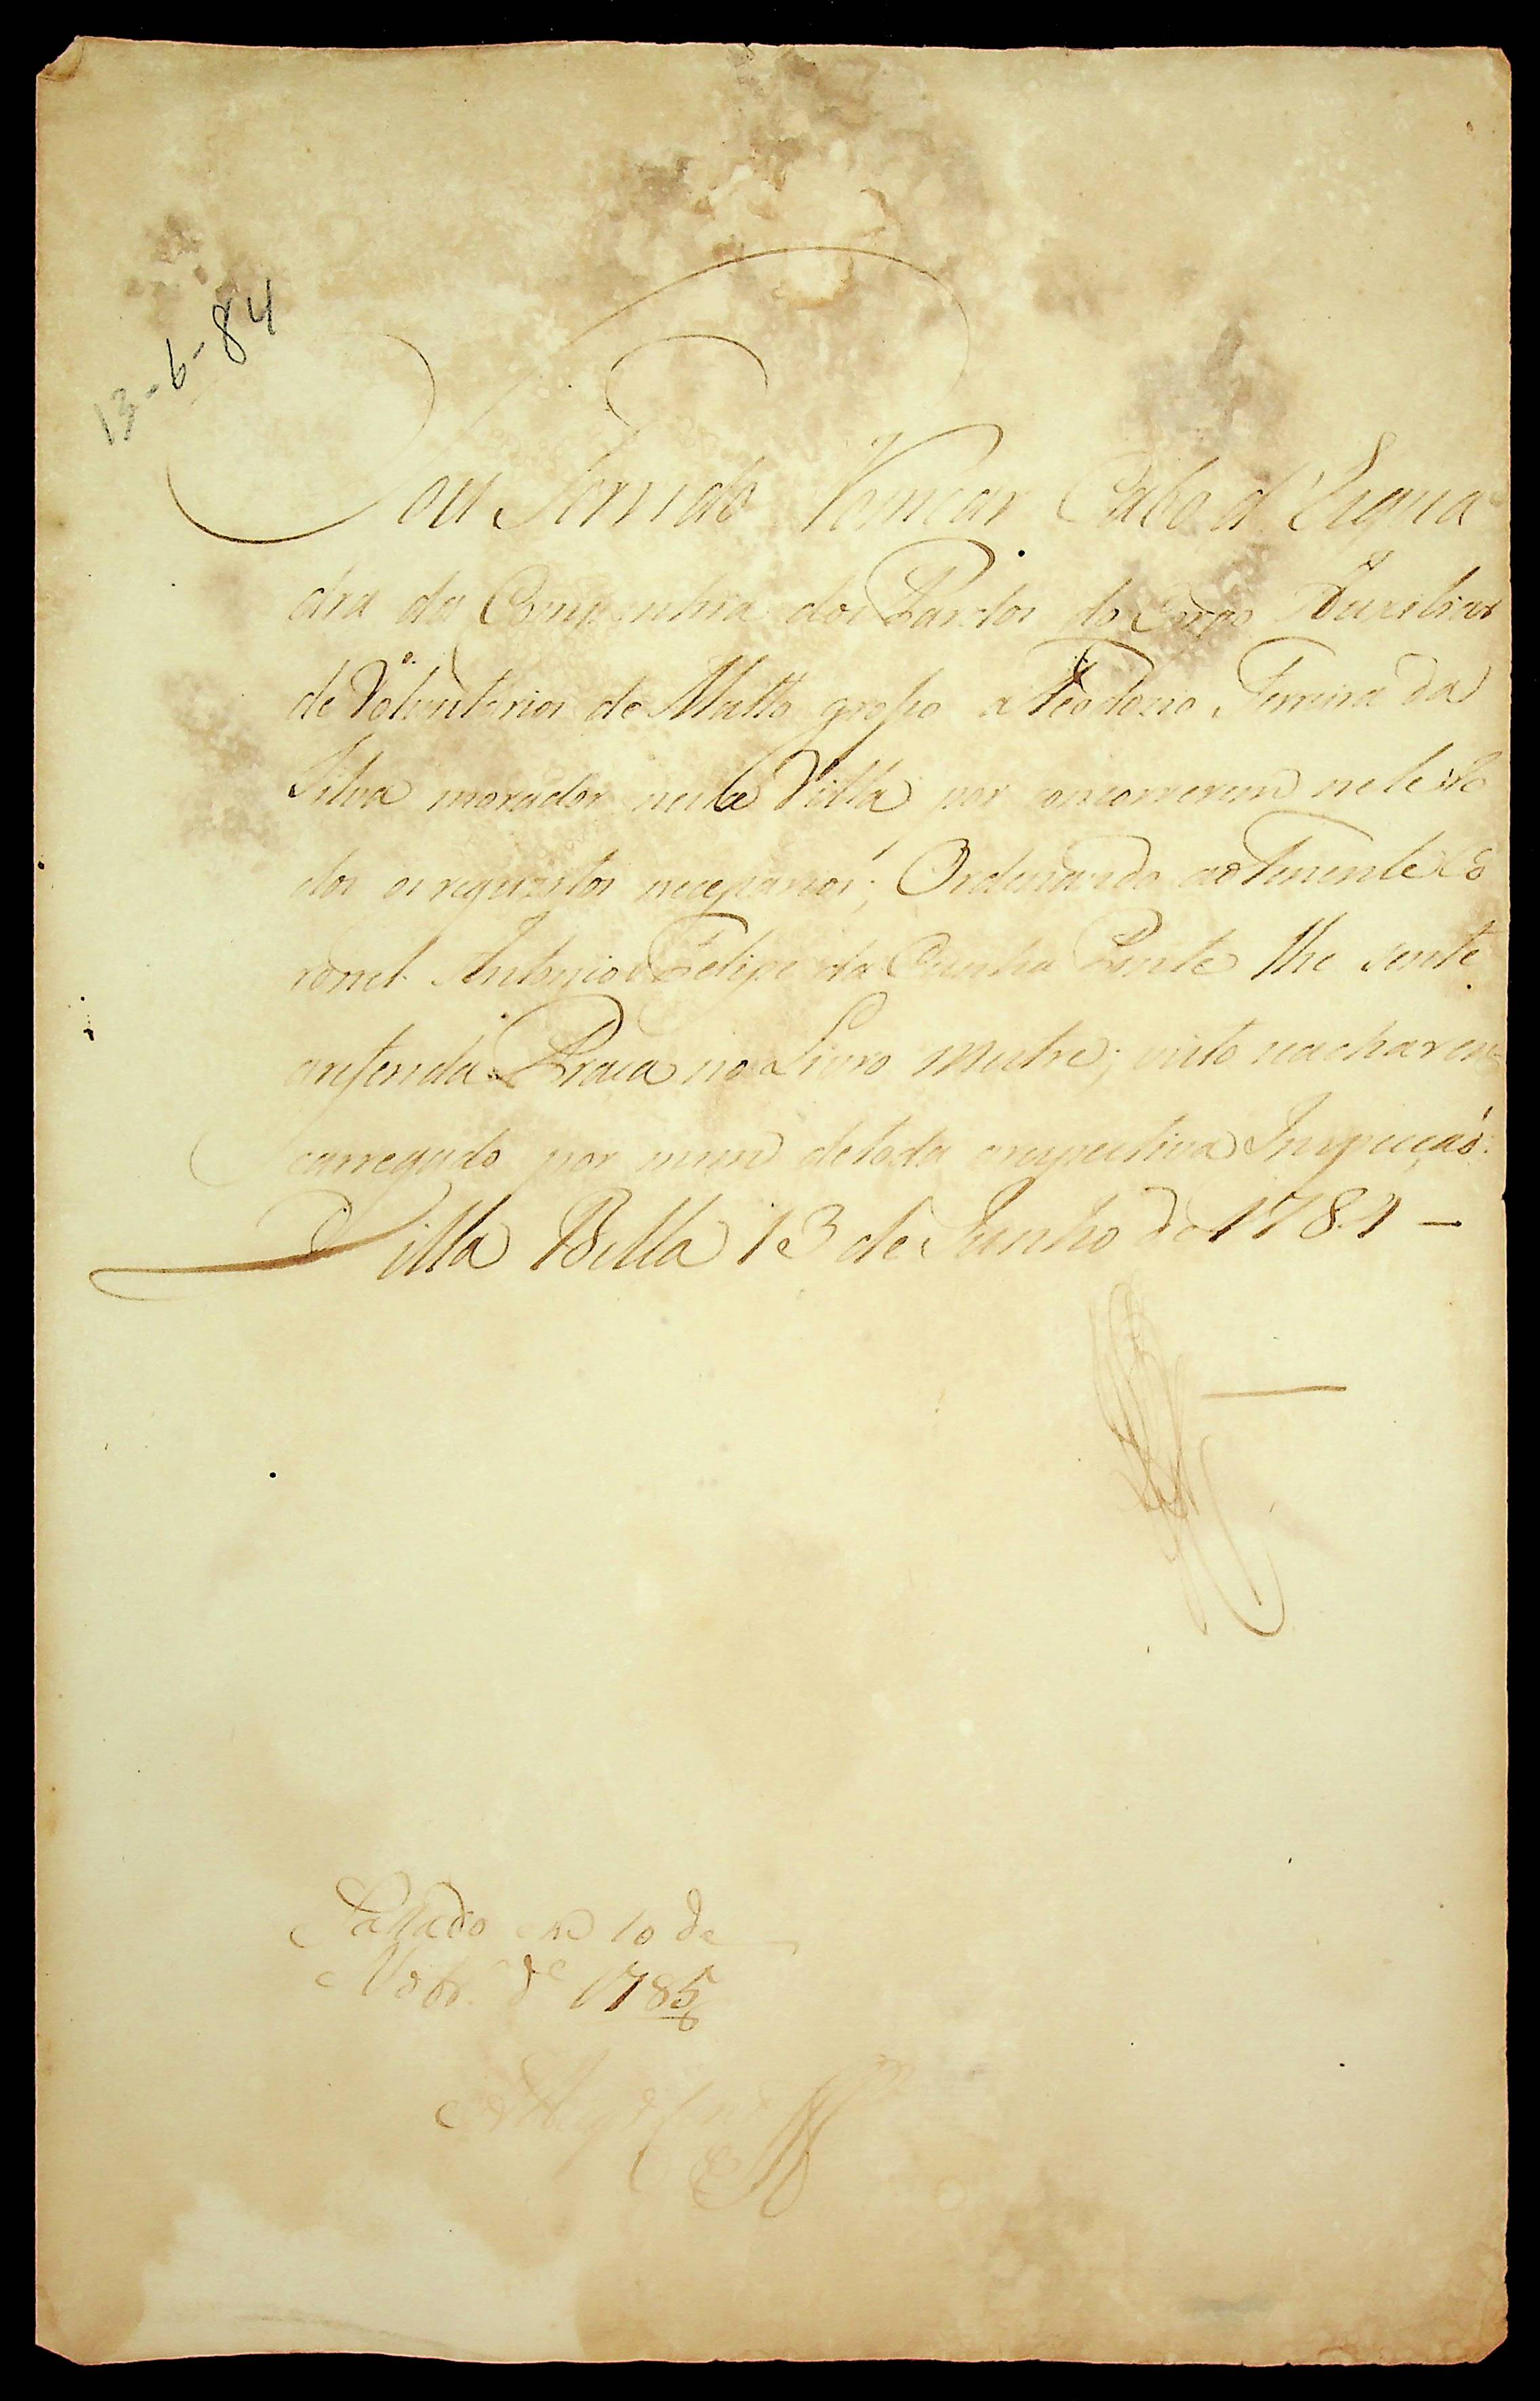 13-6-84
Sou Servido Nomear Cabo d'Esqua
dra da Companhia dos Pardos do Corpo Auxiliar
de Voluntarios de Matto grosso a Teodozio Ferreira da
Silva morador nesta Villa por concorrerem nele to
dos os requizitos necessarios; Ordenando ao Tenente Co
ronel Antonio Felipe da Cunha Ponte lhe sente
areferida Praça no Livro Mestre; visto seachar en
carregado por mim detoda arespectiva Inspecçaõ.
Villa Bella 13 de Junho de 1784 —
em 10 de
Nobr.º de 1785